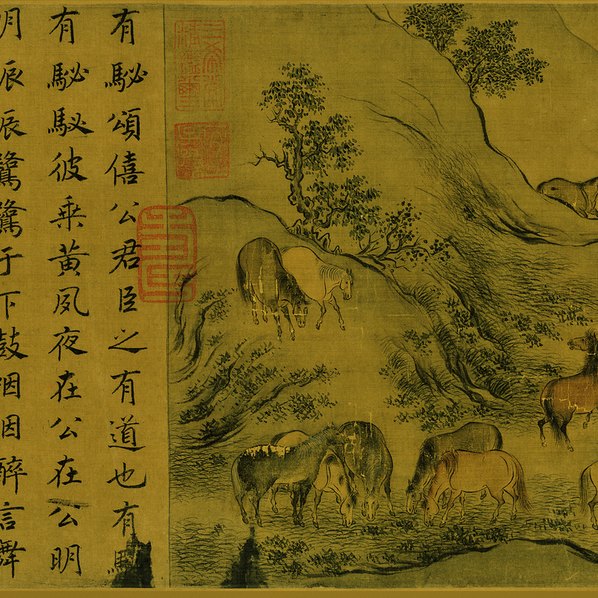 有駜頌僖公君臣之有道也有駜
有駜駜彼乘黃夙夜在公在公明
明振振鷺鷺于下鼓咽咽醉言舞